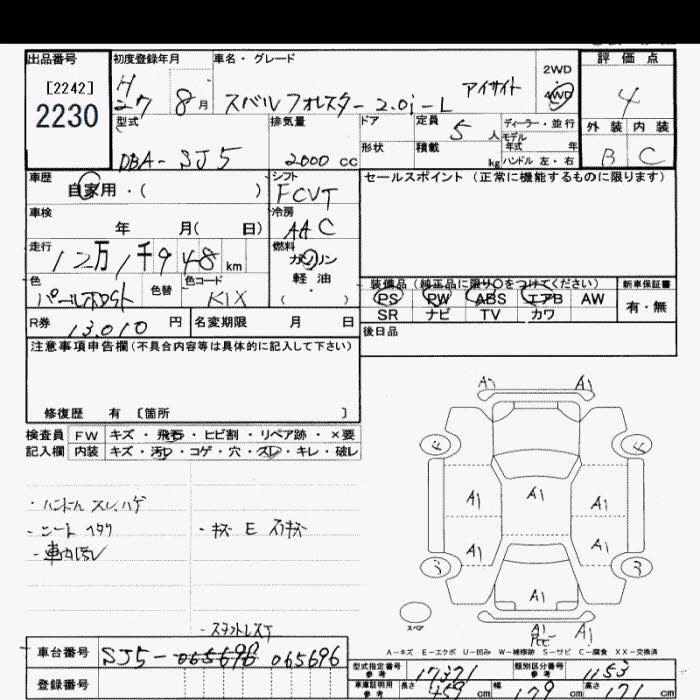 出品番号 初度登録年月 車名・グレード 評価点
[2242] 2230
H 27 8月 スバル フォレスター 2.0i-L アイサイト 2WD 4WD 4
型式 排気量 ドア 定員 5人 ディーラー・並行 モデル 外装 内装
DBA-SJ5 2000cc 形状 積載 kg 年式 年 ハンドル 左・右 B C
車歴 自家用・( ) シフト FCVT セールスポイント(正常に機能するものに限ります)
車検 年 月( 日) 冷房 AAC
走行 12万1千948km 燃料 ガソリン 軽油・( )
色 色替 色コード K1X 装備品(純正品に限り○をつけてください) 新車保証書
PS PW ABS エアB AW 有・無
R券 13,010円 名変期限 月 日 SR ナビ TV カワ
注意事項申告欄(不具合内容等は具体的に記入して下さい) 後日品
修復歴 有 〔箇所 〕
検査員 FW キズ・飛石・ヒビ割・リペア跡・×要
記入欄 内装 キズ・汚レ・コゲ・穴・スレ・キレ・破レ
A1 A1
・ハンドル スレ.ハゲ
・シート ヘタリ ・キズ E スリキズ
A1 A1 A1
A1 A1
A1
スペア A1 A1
A-キズ E-エクボ U-凹み W-補修跡 S-サビ C-腐食 XX-交換済
車台番号 SJ5-065696 065696
型式指定番号 参考 17321 類別区分番号 参考 1153
登録番号 車庫証明用 参考 長さ 459cm 幅 179cm 高さ 171cm